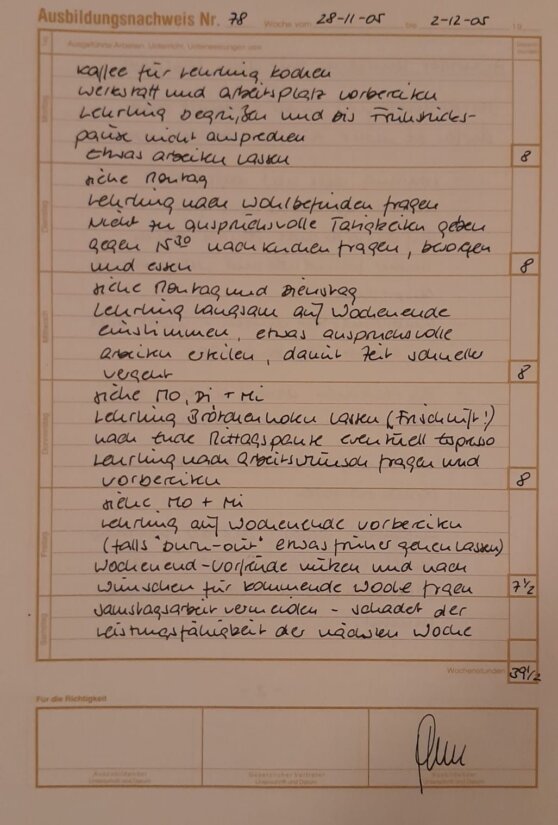 Ausbildungsnachweis Nr. 78 Woche vom 28-11-05 bis 2-12-05 19
Tag Ausgeführte Arbeiten, Unterricht, Unterweisungen usw.
Kaffee für Lehrling kochen
Werkstatt und Arbeitsplatz vorbereiten
Lehrling begrüßen und bis Frühstücks-
pause nicht ansprechen
Etwas arbeiten lassen 8
Montag
siehe Montag
Lehrling nach Wohlbefinden fragen
Nicht zu anspruchsvolle Tätigkeiten geben
gegen 15 30 nach Kuchen fragen, besorgen
und essen 8
Dienstag
siehe Montag und Dienstag
Lehrling langsam auf Wochenende
einstimmen, etwas anspruchsvolle
Arbeiten erteilen, damit Zeit schneller
vergeht 8
Mittwoch
siehe Mo, Di + Mi
Lehrling Brötchen holen lassen (Frischluft!)
nach Ende Mittagspause eventuell Espresso
Lehrling nach Arbeitswunsch fragen und
vorbereiten 8
Donnerstag
siehe Mo + Mi
Lehrling auf Wochenende vorbereiten
(falls "burn-out" etwas früher gehen lassen)
Wochenend-Vorfreude nützen und nach
Wünschen für kommende Woche fragen 7 1/2
Freitag
Samstagsarbeit vermeiden - schadet der
Leistungsfähigkeit der nächsten Woche
Samstag
Wochenstunden 39 1/2
Für die Richtigkeit
Auszubildender
Unterschrift und Datum
Gesetzlicher Vertreter
Unterschrift und Datum
Ausbildender
Unterschrift und Datum